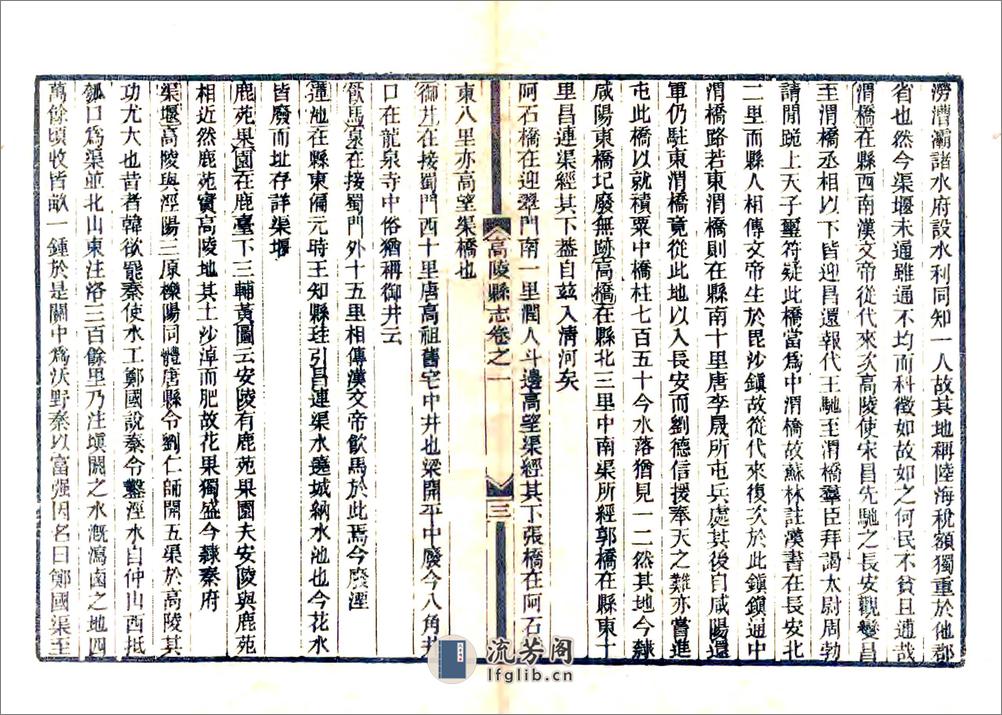 澇漕灞諸水府設水利同知一人故其地稱陸海稅額獨重於他郡
省也然今渠堰未通雖通不均而科徵如故如之何民不貧且逋哉
渭橋在縣西南漢文帝從代來次高陵使宋昌先馳之長安觀變昌
至渭橋丞相以下皆迎昌還報代王馳至渭橋羣臣拜謁太尉周勃
請閒跪上天子璽符疑此橋當爲中渭橋故蘇林註漢書在長安北
二里而縣人相傳文帝生於毘沙鎮故從代來復次於此鎮鎮通中
渭橋路若東渭橋則在縣南十里唐李晟所屯兵處其後自咸陽還
軍仍駐東渭橋竟從此地以入長安而劉德信援奉天之難亦嘗進
屯此橋以就積粟中橋柱七百五十今水落猶見一二然其地今隸
咸陽東橋圮廢無跡高橋在縣北三里中南渠所經郭橋在縣東十
里昌連渠經其下葢自玆入清河矣
阿石橋在迎翠門南一里濶人斗邊高望渠經其下張橋在阿石
東八里亦高望渠橋也
御井在接蜀門西十里唐高祖舊宅中井也梁開平中廢今八角井
口在龍泉寺中俗猶稱御井云
飲馬泉在接蜀門外十五里相傳漢文帝飲馬於此焉今廢湮
蓮池在縣東備元時王知縣珪引昌連渠水遶城納水池也今花水
皆廢而址存詳渠堰
鹿苑果園在鹿臺下三輔黃圖云安陵有鹿苑果園夫安陵與鹿苑
相近然鹿苑實高陵地其土沙淖而肥故花果獨盛今隸秦府
渠堰高陵與涇陽三原櫟陽同體唐縣令劉仁師開五渠於高陵其
功尤大也昔者韓欲罷秦使水工鄭國說秦令鑿涇水自仲山西抵
瓠口爲渠並北山東注洛三百餘里乃注塡閼之水漑瀉鹵之地四
萬餘頃收皆畝一鍾於是關中爲沃野秦以富强因名曰鄭國渠至
高陵縣志卷之一
三
流芳阁
lfglib.cn